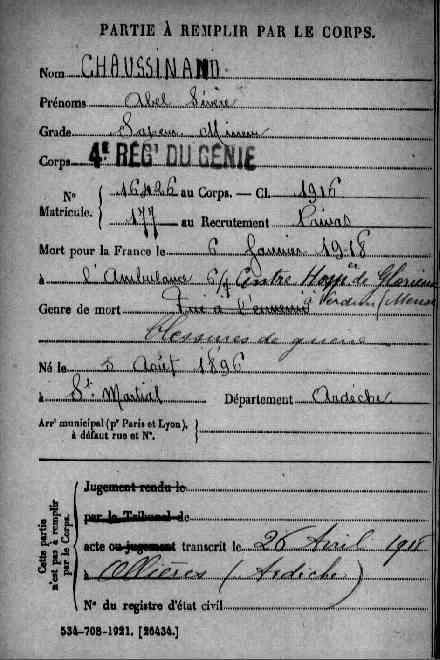 PARTIE À REMPLIR PAR LE CORPS.
Nom CHAUSSINAND
Prénoms Abel Sévère
Grade Sapeur Mineur
Corps 4E RÉGT DU GÉNIE
N° Matricule. 16426 au Corps. — Cl. 1916
177 au Recrutement Privas
Mort pour la France le 6 Janvier 1918
à l'Ambulance 6/7 Centre Hospier de Glorieux
à Verdun (Meuse)
Genre de mort Tué à l'ennemi
blessures de guerre
Né le 5 Août 1896
à St Martial Département Ardèche
Arrt municipal (pr Paris et Lyon),
à défaut rue et N°.
Cette partie n'est pas à remplir par le Corps.
Jugement rendu le
par le Tribunal de
acte ou jugement transcrit le 26 Avril 1918
à Ollières (Ardèche)
N° du registre d'état civil
534-708-1921. [26434.]